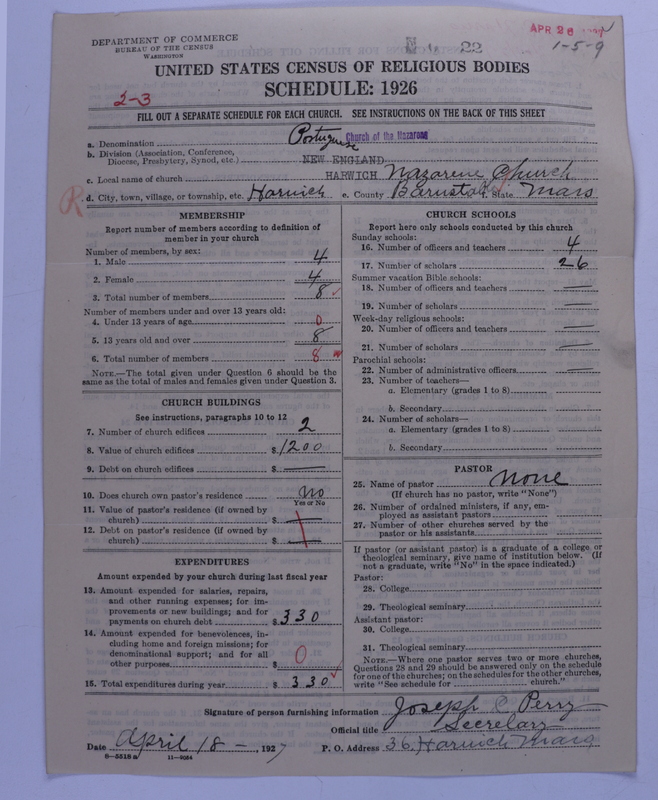 DEPARTMENT OF COMMERCE
BUREAU OF THE CENSUS
WASHINGTON
22
APR 26
1-5-9
UNITED STATES CENSUS OF RELIGIOUS BODIES
SCHEDULE: 1926
2-3
FILL OUT A SEPARATE SCHEDULE FOR EACH CHURCH. SEE INSTRUCTIONS ON THE BACK OF THIS SHEET
a. Denomination Portuguese Church of the Nazarene
b. Division (Association, Conference, Diocese, Presbytery, Synod, etc.) NEW ENGLAND
c. Local name of church HARWICH Nazarene Church
R d. City, town, village, or township, etc. Harwich e. County Barnstable f. State Mass
MEMBERSHIP
Report number of members according to definition of
member in your church
Number of members, by sex:
1. Male 4
2. Female 4
3. Total number of members 8 ✓
Number of members under and over 13 years old:
4. Under 13 years of age 0
5. 13 years old and over 8
6. Total number of members 8
NOTE.—The total given under Question 6 should be the
same as the total of males and females given under Question 3.
CHURCH BUILDINGS
See instructions, paragraphs 10 to 12
7. Number of church edifices 2
8. Value of church edifices $ 1200
9. Debt on church edifices $ —
10. Does church own pastor's residence no
Yes or No
11. Value of pastor's residence (if owned by
church) $ —
12. Debt on pastor's residence (if owned by
church) $ —
EXPENDITURES
Amount expended by your church during last fiscal year
13. Amount expended for salaries, repairs,
and other running expenses; for im-
provements or new buildings; and for
payments on church debt $ 330
14. Amount expended for benevolences, in-
cluding home and foreign missions; for
denominational support; and for all
other purposes $ 0
15. Total expenditures during year $ 330 ✓
CHURCH SCHOOLS
Report here only schools conducted by this church
Sunday schools:
16. Number of officers and teachers 4
17. Number of scholars 26
Summer vacation Bible schools:
18. Number of officers and teachers —
19. Number of scholars —
Week-day religious schools:
20. Number of officers and teachers —
21. Number of scholars —
Parochial schools:
22. Number of administrative officers —
23. Number of teachers—
a. Elementary (grades 1 to 8)
b. Secondary
24. Number of scholars—
a. Elementary (grades 1 to 8)
b. Secondary
PASTOR
25. Name of pastor none
(If church has no pastor, write "None")
26. Number of ordained ministers, if any, em-
ployed as assistant pastors
27. Number of other churches served by the
pastor or his assistants
If pastor (or assistant pastor) is a graduate of a college or
theological seminary, give name of institution below. (If
not a graduate, write "No" in the space indicated.)
Pastor:
28. College
29. Theological seminary
Assistant pastor:
30. College
31. Theological seminary
NOTE.—Where one pastor serves two or more churches,
Questions 28 and 29 should be answered only on the schedule
for one of the churches; on the schedules for the other churches,
write "See schedule for church."
Signature of person furnishing information Joseph C Perry
Official title Secretary
Date April 18 - , 1927 P. O. Address 36, Harwich Mass
6—5518a 11—9064